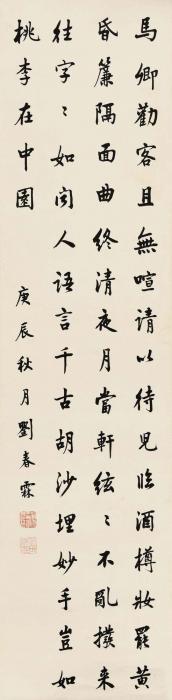 馬卿勸客且無喧請以侍兒臨酒樽妝罷黃
昏簾隔面曲終清夜月當軒絃〻不亂撥来
往字〻如聞人語言千古胡沙埋妙手豈如
桃李在中園
庚辰秋月劉春霖